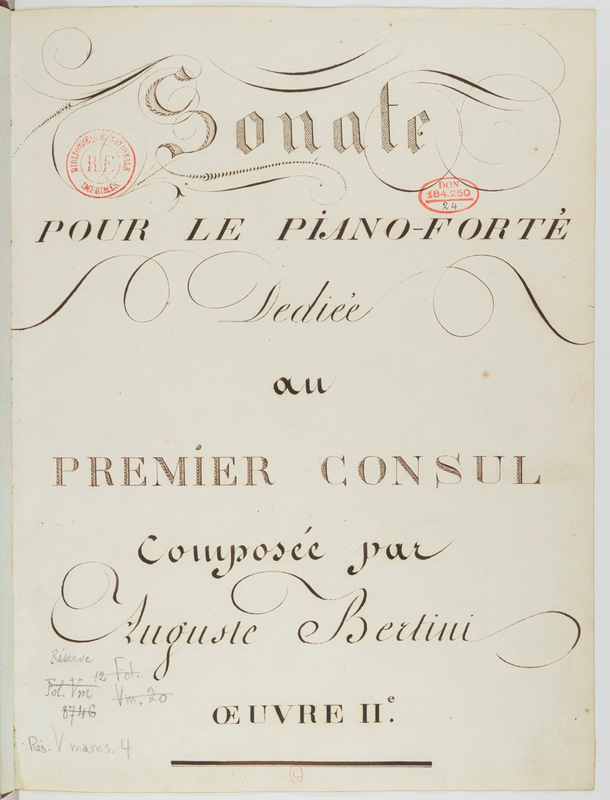 Sonate
BIBLIOTHEQUE NATIONALE
R.F.
IMPRIMÉS
DON
184.250
24
POUR LE PIANO-FORTÉ
Dediée
au
PREMIER CONSUL
Composée par
Auguste Bertini
Réserve
12 Fol.
Fol. Vm
Vm. 20
8746
ŒUVRE IIe.
Rés. Vmams. 4
C